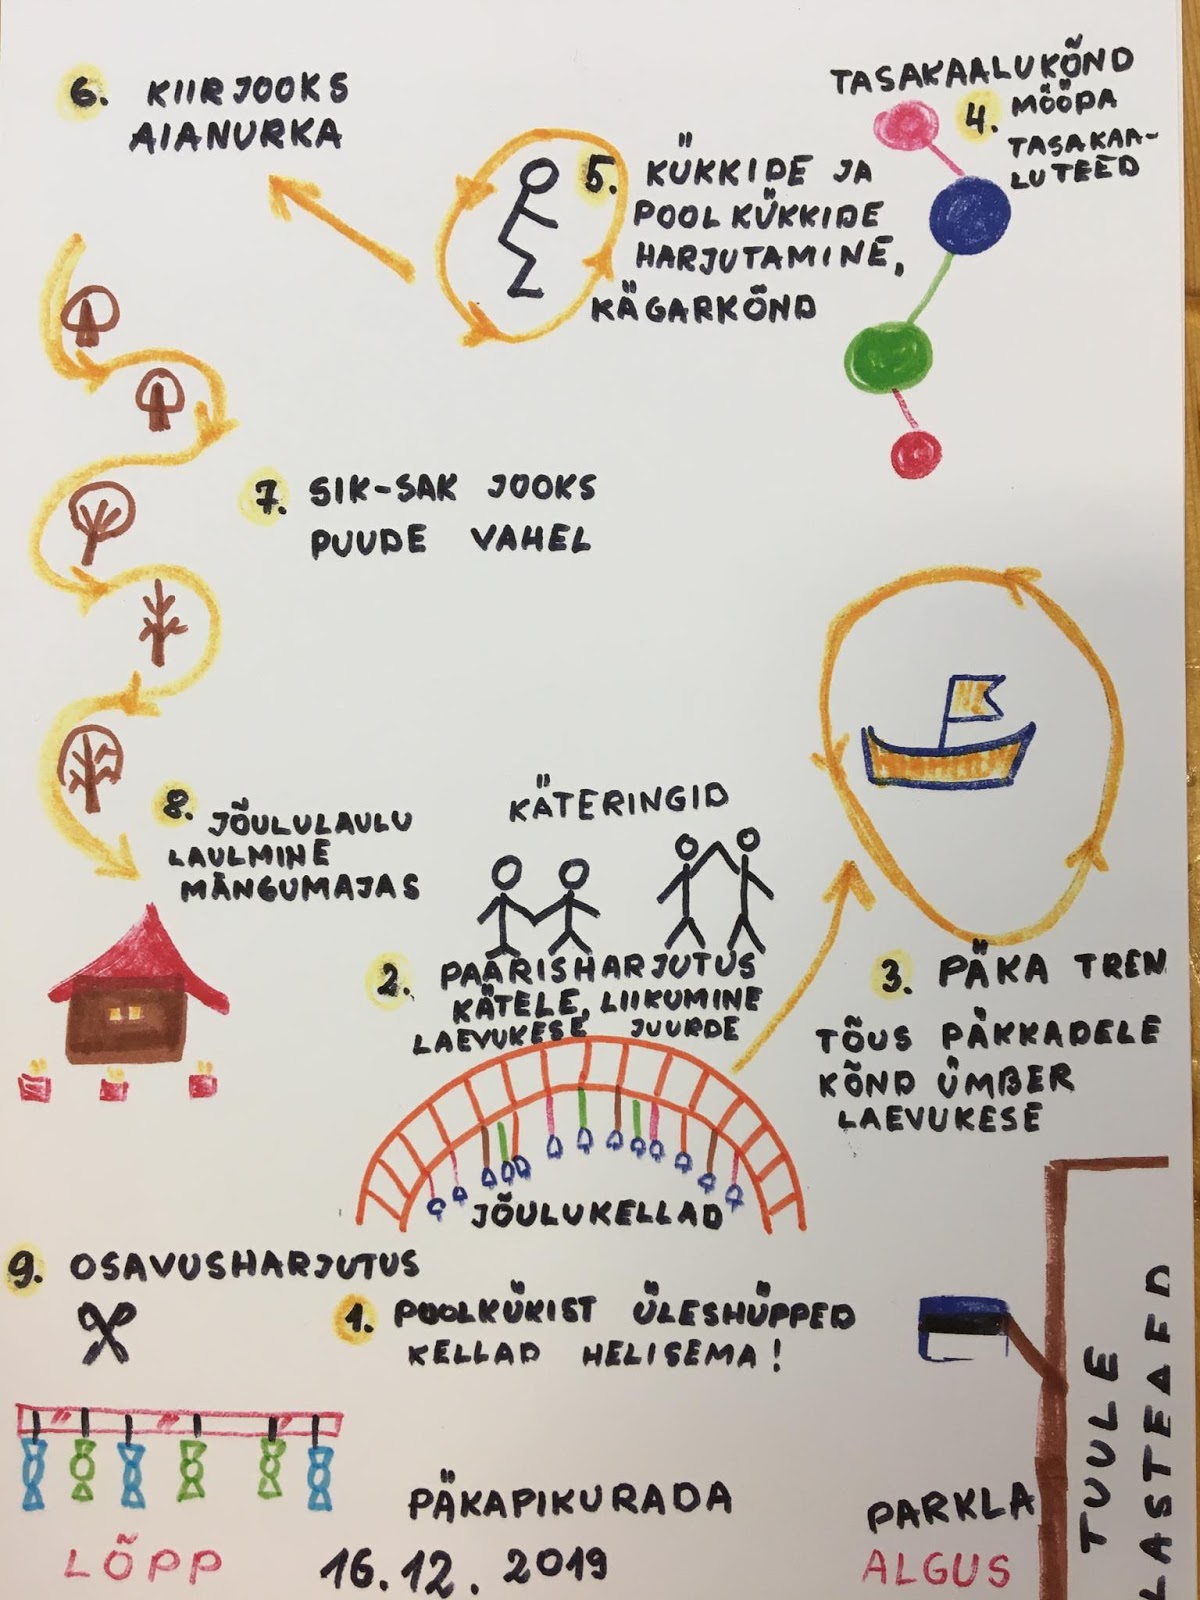 6. KIIRJOOKS
AIANURKA
TASAKAALUKÕND
4. MÖÖDA
TASAKAA-
LUTEED
5. KÜKKIDE JA
POOLKÜKKIDE
HARJUTAMINE,
KÄGARKÕND
7. SIK-SAK JOOKS
PUUDE VAHEL
8. JÕULULAULU
LAULMINE
MÄNGUMAJAS
KÄTERINGID
2. PAARISHARJUTUS
KÄTELE, LIIKUMINE
LAEVUKESE JUURDE
3. PÄKA TREN
TÕUS PÄKKADELE
KÕND ÜMBER
LAEVUKESE
JÕULUKELLAD
9. OSAVUSHARJUTUS
1. POOLKÜKIST ÜLESHÜPPED
KELLAD HELISEMA!
PÄKAPIKURADA
16.12.2019
LÕPP
PARKLA
ALGUS
TUULE
LASTEAED